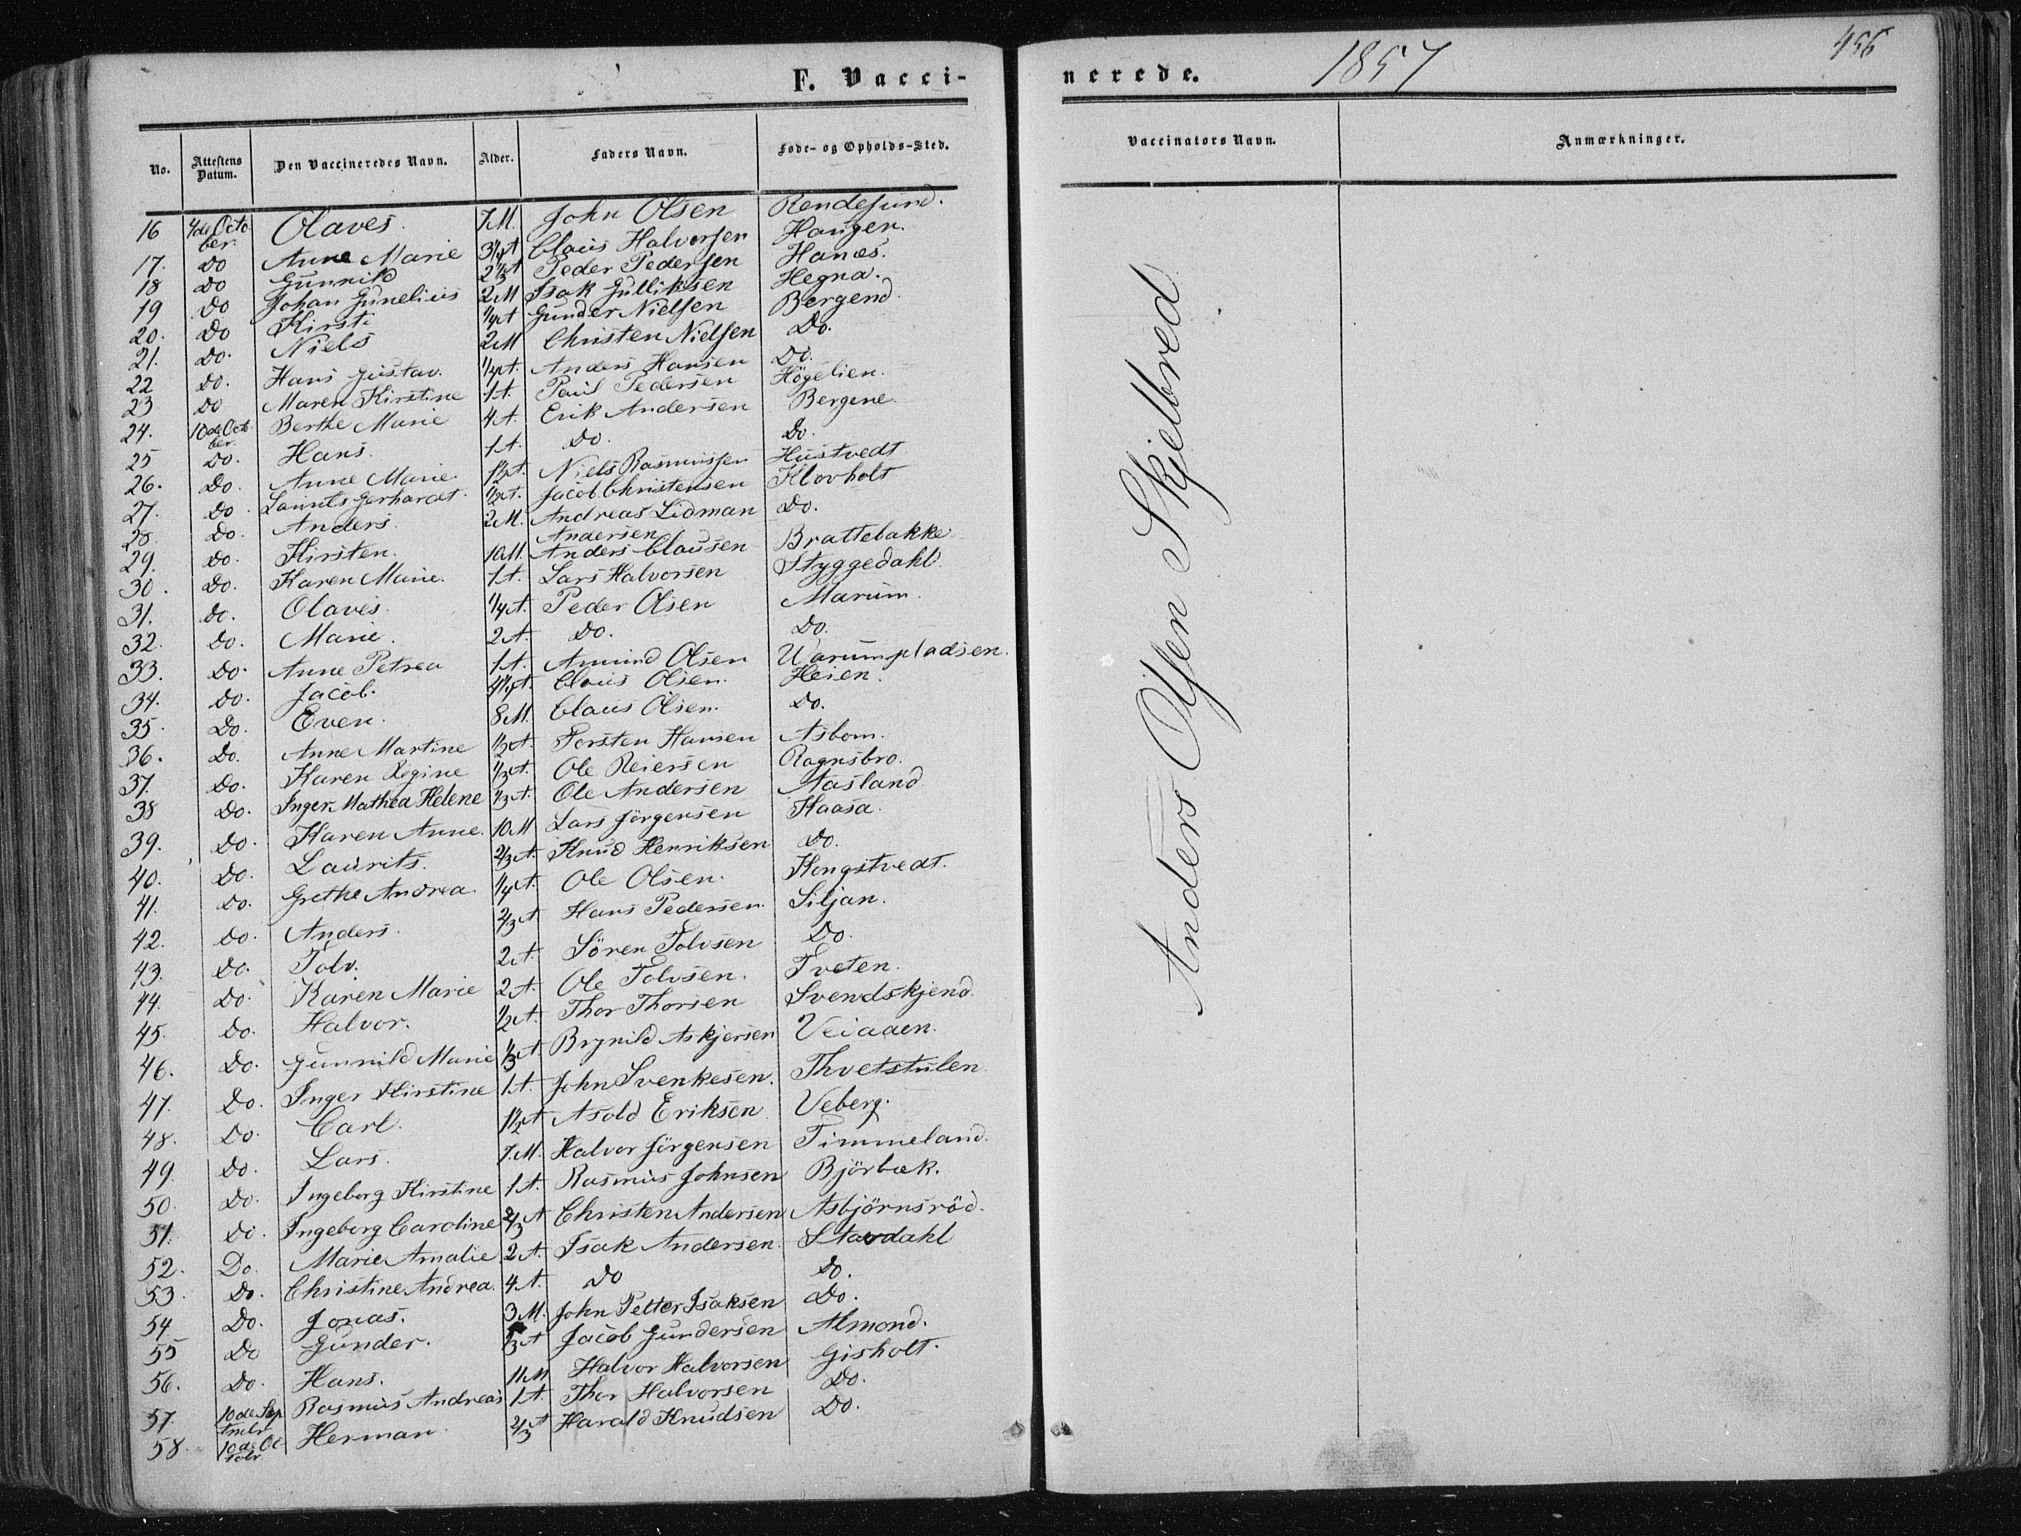 F. Vacci-
nerede.
1857
456
No.
Attestens Datum.
Den Vaccineredes Navn.
Alder.
Faders Navn.
Føde- og Opholds-Sted.
Vaccinators Navn.
Anmærkninger.
16 7de October. Olaves. 7.M. John Olsen Rendesund.
17. Do Anne Marie 3¼A Claus Halvorsen Haugen.
18 Do Gunnild 2⅓A Peder Pedersen Hanes.
19 Do Johan Gunelius 2M Isak Gulliksen Hegna.
20. Do Kirsti ¼A Gunder Nielsen Bergend.
21. Do. Niels 2M Christen Nielsen Do.
22 Do. Hans Gustav. ¼A. Anders Hansen Do.
23 Do Maren Kirstine 1A. Paul Pedersen Högelien.
24. 10de October. Berthe Marie 4A. Erik Andersen Bergene
25 Do. Hans. 1A. Do. Do.
26. Do. Anne Marie. 1½A. Niels Rasmussen Hustvedt
27. Do Laurits Gerhardt. ½A. Jacob Christensen Klovholt
28. Do. Anders. 2M. Andreas Lidman Andersen Do.
29. Do. Kirsten. 10M. Anders Clausen Brattebakke
30. Do. Karen Marie. 1A. Lars Halvorsen Styggedahl.
31. Do. Olaves. ¼A. Peder Olsen Marum.
32. Do. Marie. 2A. Do. Do.
33. Do. Anne Petrea 1A. Amund Olsen Warumpladsen.
34. Do. Jacob. 4¼A. Claus Olsen. Heien.
35. Do. Even. 8M. Claus Olsen. Do.
36. Do. Anne Martine ½A. Torsten Hansen Asbom.
37. Do. Karen Regine ⅓A. Ole Reiersen Ragnsbro.
38 Do. Inger Mathea Helene ⅓A. Ole Andersen Aasland
39. Do. Karen Anne. 10M Lars Jörgensen Haasa.
40. Do. Laurits. ⅔A. Knud Henriksen Do.
41. Do. Grethe Andrea. ¼A. Ole Olsen. Kongstvedt.
42. Do. Anders. ⅔A. Hans Pedersen. Siljan.
43. Do. Tolv. 2A. Sören Tolvsen Do.
44. Do. Karen Marie 2A. Ole Tolvsen. Tveten.
45. Do. Halvor. ½A. Thor Thorsen Svendskjend.
46. Do. Gunnild Marie ⅓A. Brynild Askjersen Veiaaen.
47. Do. Inger Kirstine 1A. John Svenkesen. Thvetstulen
48. Do. Carl. 1½A Asold Eriksen Veberg.
49. Do. Lars. 7.M. Halvor Jörgensen Timmeland.
50. Do. Ingeborg Kirstine 1A. Rasmus Johnsen Björbæk.
51. Do. Ingeborg Caroline ⅔A Christen Andersen Asbjörnsröd.
52. Do. Marie Amalie. 2A. Isak Andersen. Stavdahl
53. Do. Christine Andrea. 4A. Do Do.
54. Do. Jonas. 3M. John Petter Isaksen Do.
55 Do Gunder. ⅓A Jacob Gundersen Almond.
56. Do. Hans. 11M Halvor Halvorsen Gisholt.
57. 10de Septmbr Rasmus Andreas 1A. Thor Halvorsen Do.
58. 10de Octobr. Herman. ⅔A Harald Knudsen Do.
Anders Olsen Skjelbred